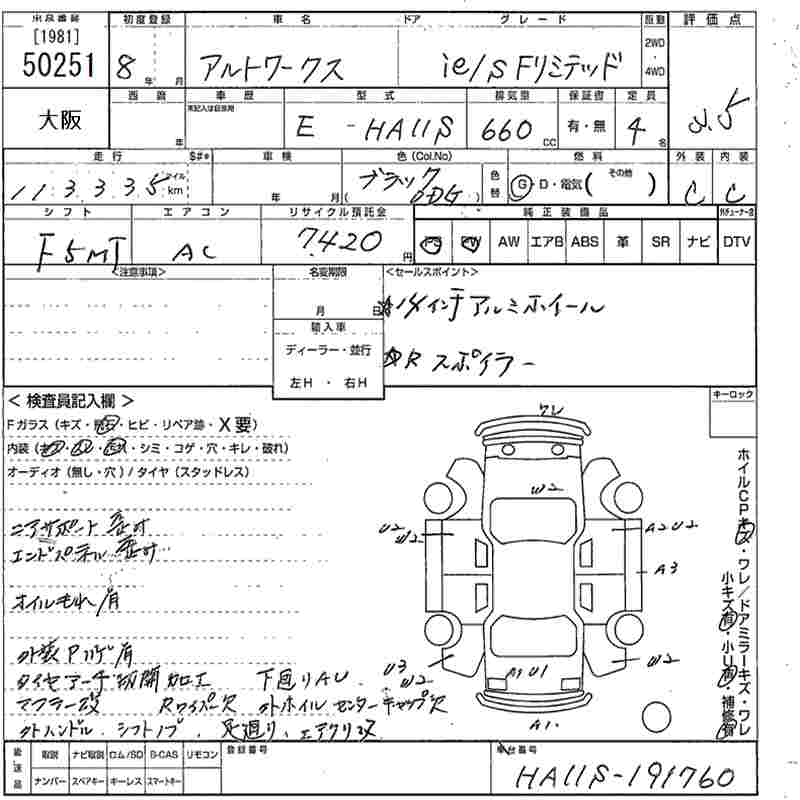 [1981]
50251
初度登録 車名 ドア グレード 原動 評価点
8年 月 アルトワークス ie/s Fリミテッド 2WD・4WD 3.5
大阪
西暦 車歴 型式 排気量 保証書 定員
年 未記入は自家用 E - HA11S 660cc 有・無 4名
走行 $#* 車検 色(Col.No) 色替 燃料 外装 内装
113,335 マイル km 年 月 ブラック ( ) G・D・電気( その他 ) C C
シフト エアコン リサイクル預託金 純正装備品
F5MT AC 7420円 PS PW AW エアB ABS 革 SR ナビ DTV
<注意事項> 名変期限 <セールスポイント>
月 日 14インチアルミホイール
輸入車
ディーラー・並行 Rスポイラー
左H ・ 右H
キーロック
<検査員記入欄>
Fガラス(キズ・飛石・ヒビ・リペア跡・X要)
内装( ・シミ・コゲ・穴・キレ・破れ)
オーディオ(無し・穴)/タイヤ(スタッドレス)
コアサポート
エンドパネル
オイルもれ 有
外装 Pハゲ有
タイヤアーチ 切開加工 下廻りAU
マフラー改 Rワイパー欠 外ホイルセンターキャップ欠
外ハンドル、シフトノブ、足廻り、エアクリ改
ワレ
W2
U2 W2
A2 U2
A3
U3 W2
W2
A1 U1
A1
ホイルCPキズ・ワレ/ドアミラーキズ・ワレ
小キズ有・小U有・補修有
後送品 取説 ナビ取説 ロム/SD B-CAS リモコン 登録番号 車台番号
ナンバー スペアキー キーレス スマートキー HA11S-191760